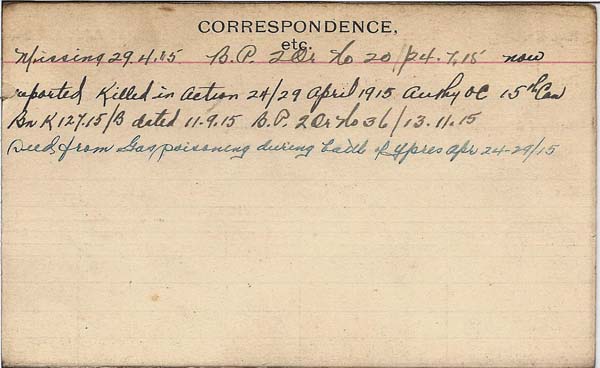 CORRESPONDENCE,
etc.
Missing 29.4.15 B.P. 2 Or No 20/24.7.15 now
reported Killed in Action 24/29 April 1915 Authy OC 15th Can
Bn K127.15/B dated 11.9.15 B.P. 2 Or No 36/13.11.15
Died from Gas poisoning during battle of Ypres Apr 24-29/15